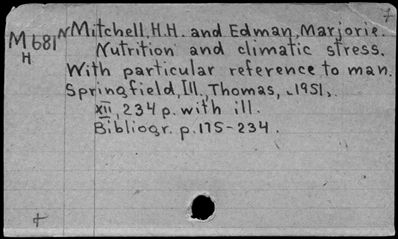 7
M681 N Mitchell, H.H. and Edman, Marjorie.
H Nutrition and climatic stress.
With particular reference to man.
Springfield, Ill., Thomas, <1951>.
XII, 234 p. with ill.
Bibliogr. p. 175-234.